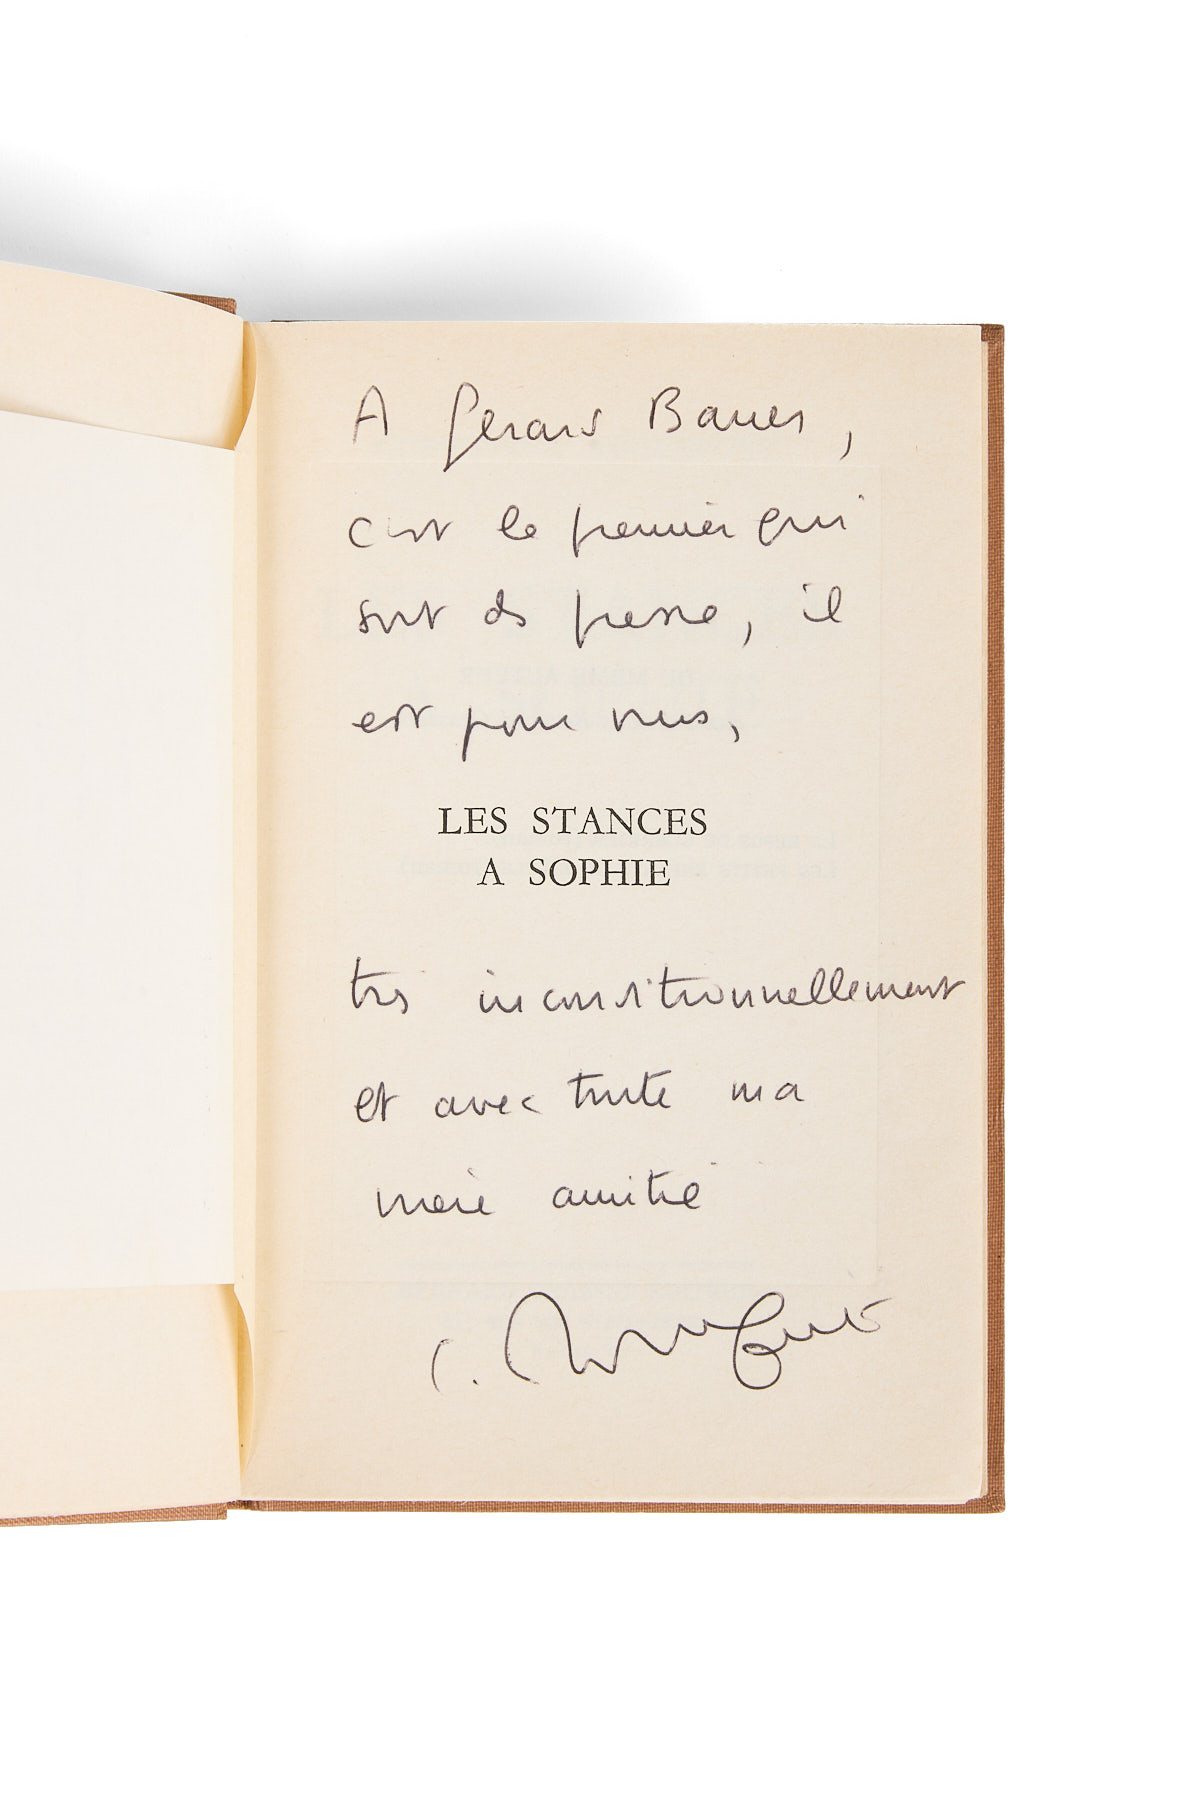 A Gérard Bauer,
c'est le premier qui
sort de presse, il
est pour vous,
LES STANCES
A SOPHIE
très inconditionnellement
et avec toute ma
vraie amitié
C. Rochefort